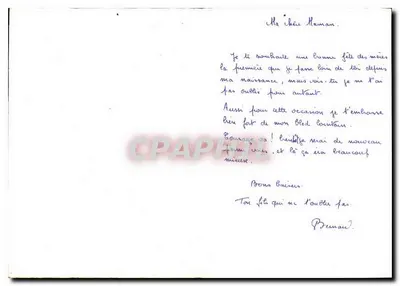 Ma chère Maman.
Je te souhaite une bonne fête des mères
la première que je passe loin de toi depuis
ma naissance, mais vois-tu je ne t'ai
pas oublié pour autant.
Aussi pour cette occasion je t'embrasse
bien fort de mon bled lointain.
! bientôt je serai de nouveau
et là ça ira beaucoup
mieux.
Bons baisers
Ton fils qui ne t'oublie pas.
Bernard
CPAPHIL